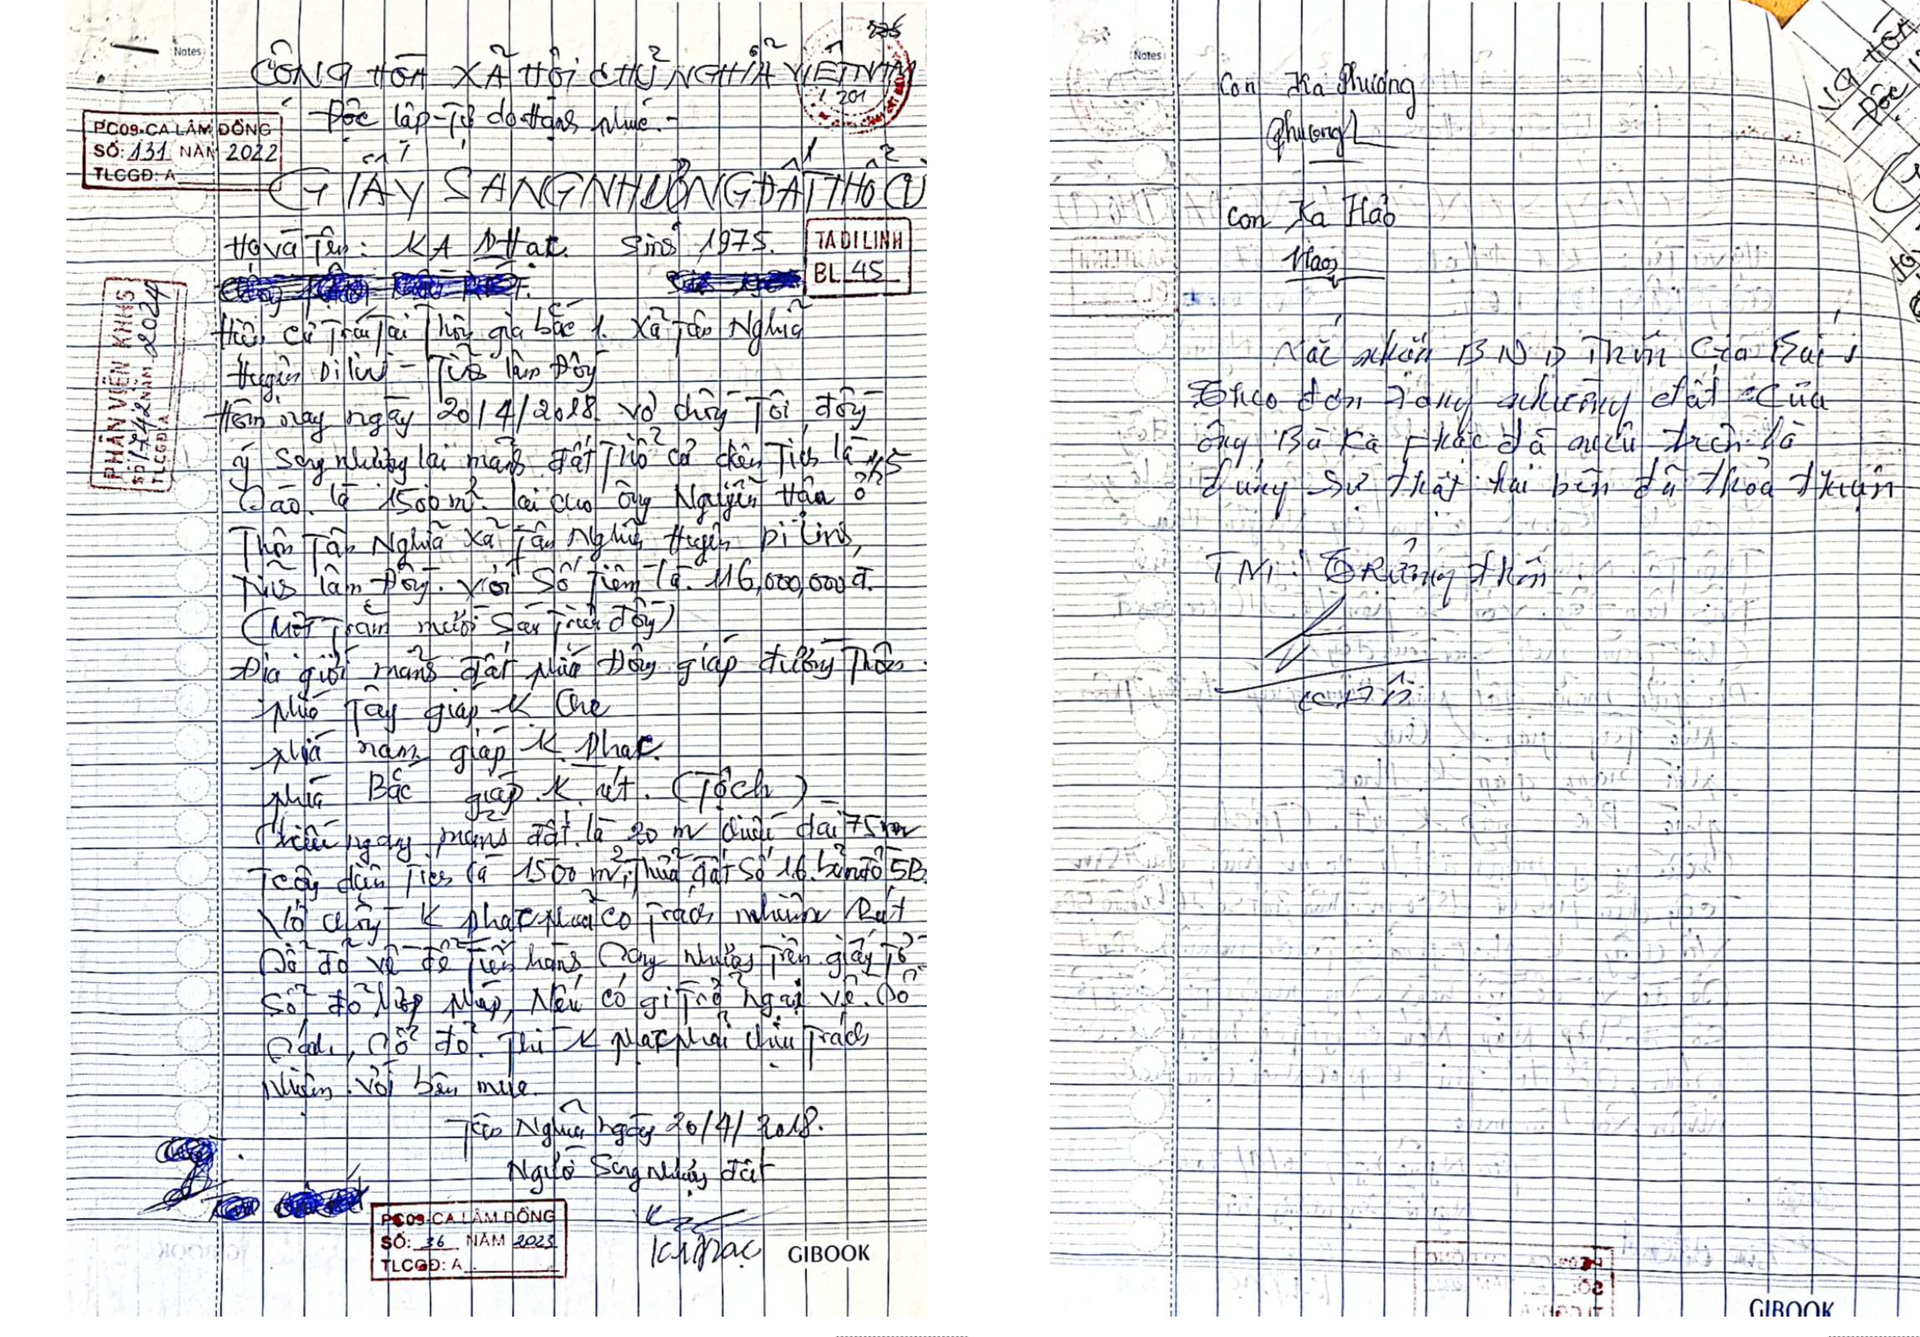 Notes
CỘNG HÒA XÃ HỘI CHỦ NGHĨA VIỆT NAM
Độc lập - Tự do Hạnh phúc.-
201
PC09-CA LÂM ĐỒNG
SỐ: 131 NĂM 2022
TLCGĐ: A
GIẤY SANG NHƯỢNG ĐẤT THỔ CƯ
Họ và Tên: KA Phạc. Sinh 1975.
TA DI LINH
BL 45
PHÂN VIỆN KHHS
SỐ 1742 NĂM 2024
TLCGĐ: A
Hiện cư Trú Tại Thôn gia bắc 1. xã Tân Nghĩa
Huyện Di Linh - Tỉnh Lâm Đồng
Hôm nay ngày 20/4/2018 vợ chồng Tôi đồng
ý sang nhượng lại mảnh đất Thổ cư diện Tích là
1500 m². lại cho ông Nguyễn Hân ở
Thôn Tân Nghĩa Xã Tân Nghĩa Huyện Di Linh,
Tỉnh Lâm Đồng. với Số Tiền là. 116,000,000đ.
(Một Trăm mười Sáu Triệu đồng)
Địa giới mảnh đất phía Đông giáp đường Thôn
phía Tây giáp K Che
phía nam giáp K. Phạc.
phía Bắc giáp. K út. (Tộch)
Chiều ngang mảnh đất là 20 m chiều dài 75 m
Tổng diện Tích là 1500 m², Thửa đất Số 16. bản đồ 5B.
Vợ chồng K phạc phải có Trách nhiệm Rút
Sổ đỏ về để Tiến hành Sang nhượng Trên giấy Tờ
Sổ đỏ hợp pháp, Nếu có gì Trở ngại về Sổ
Sách, Sổ đỏ. Thì K phạc phải chịu Trách
Nhiệm với bên mua.
Tân Nghĩa ngày 20/4/2018.
Người Sang Nhượng đất
PC09-CA LÂM ĐỒNG
SỐ: 36 NĂM 2023
TLCGĐ: A
Ka phạc
GIBOOK
Notes
Con Ka Phương
Phương
Con Ka Hảo
Hảo
Xác nhận BND Thôn Gia Bắc 1
Theo đơn Sang nhượng đất Của
ông Bà Ka Phạc đã nêu trên là
đúng Sự thật hai bên đã thỏa thuận
TM: Trưởng thôn
GIBOOK